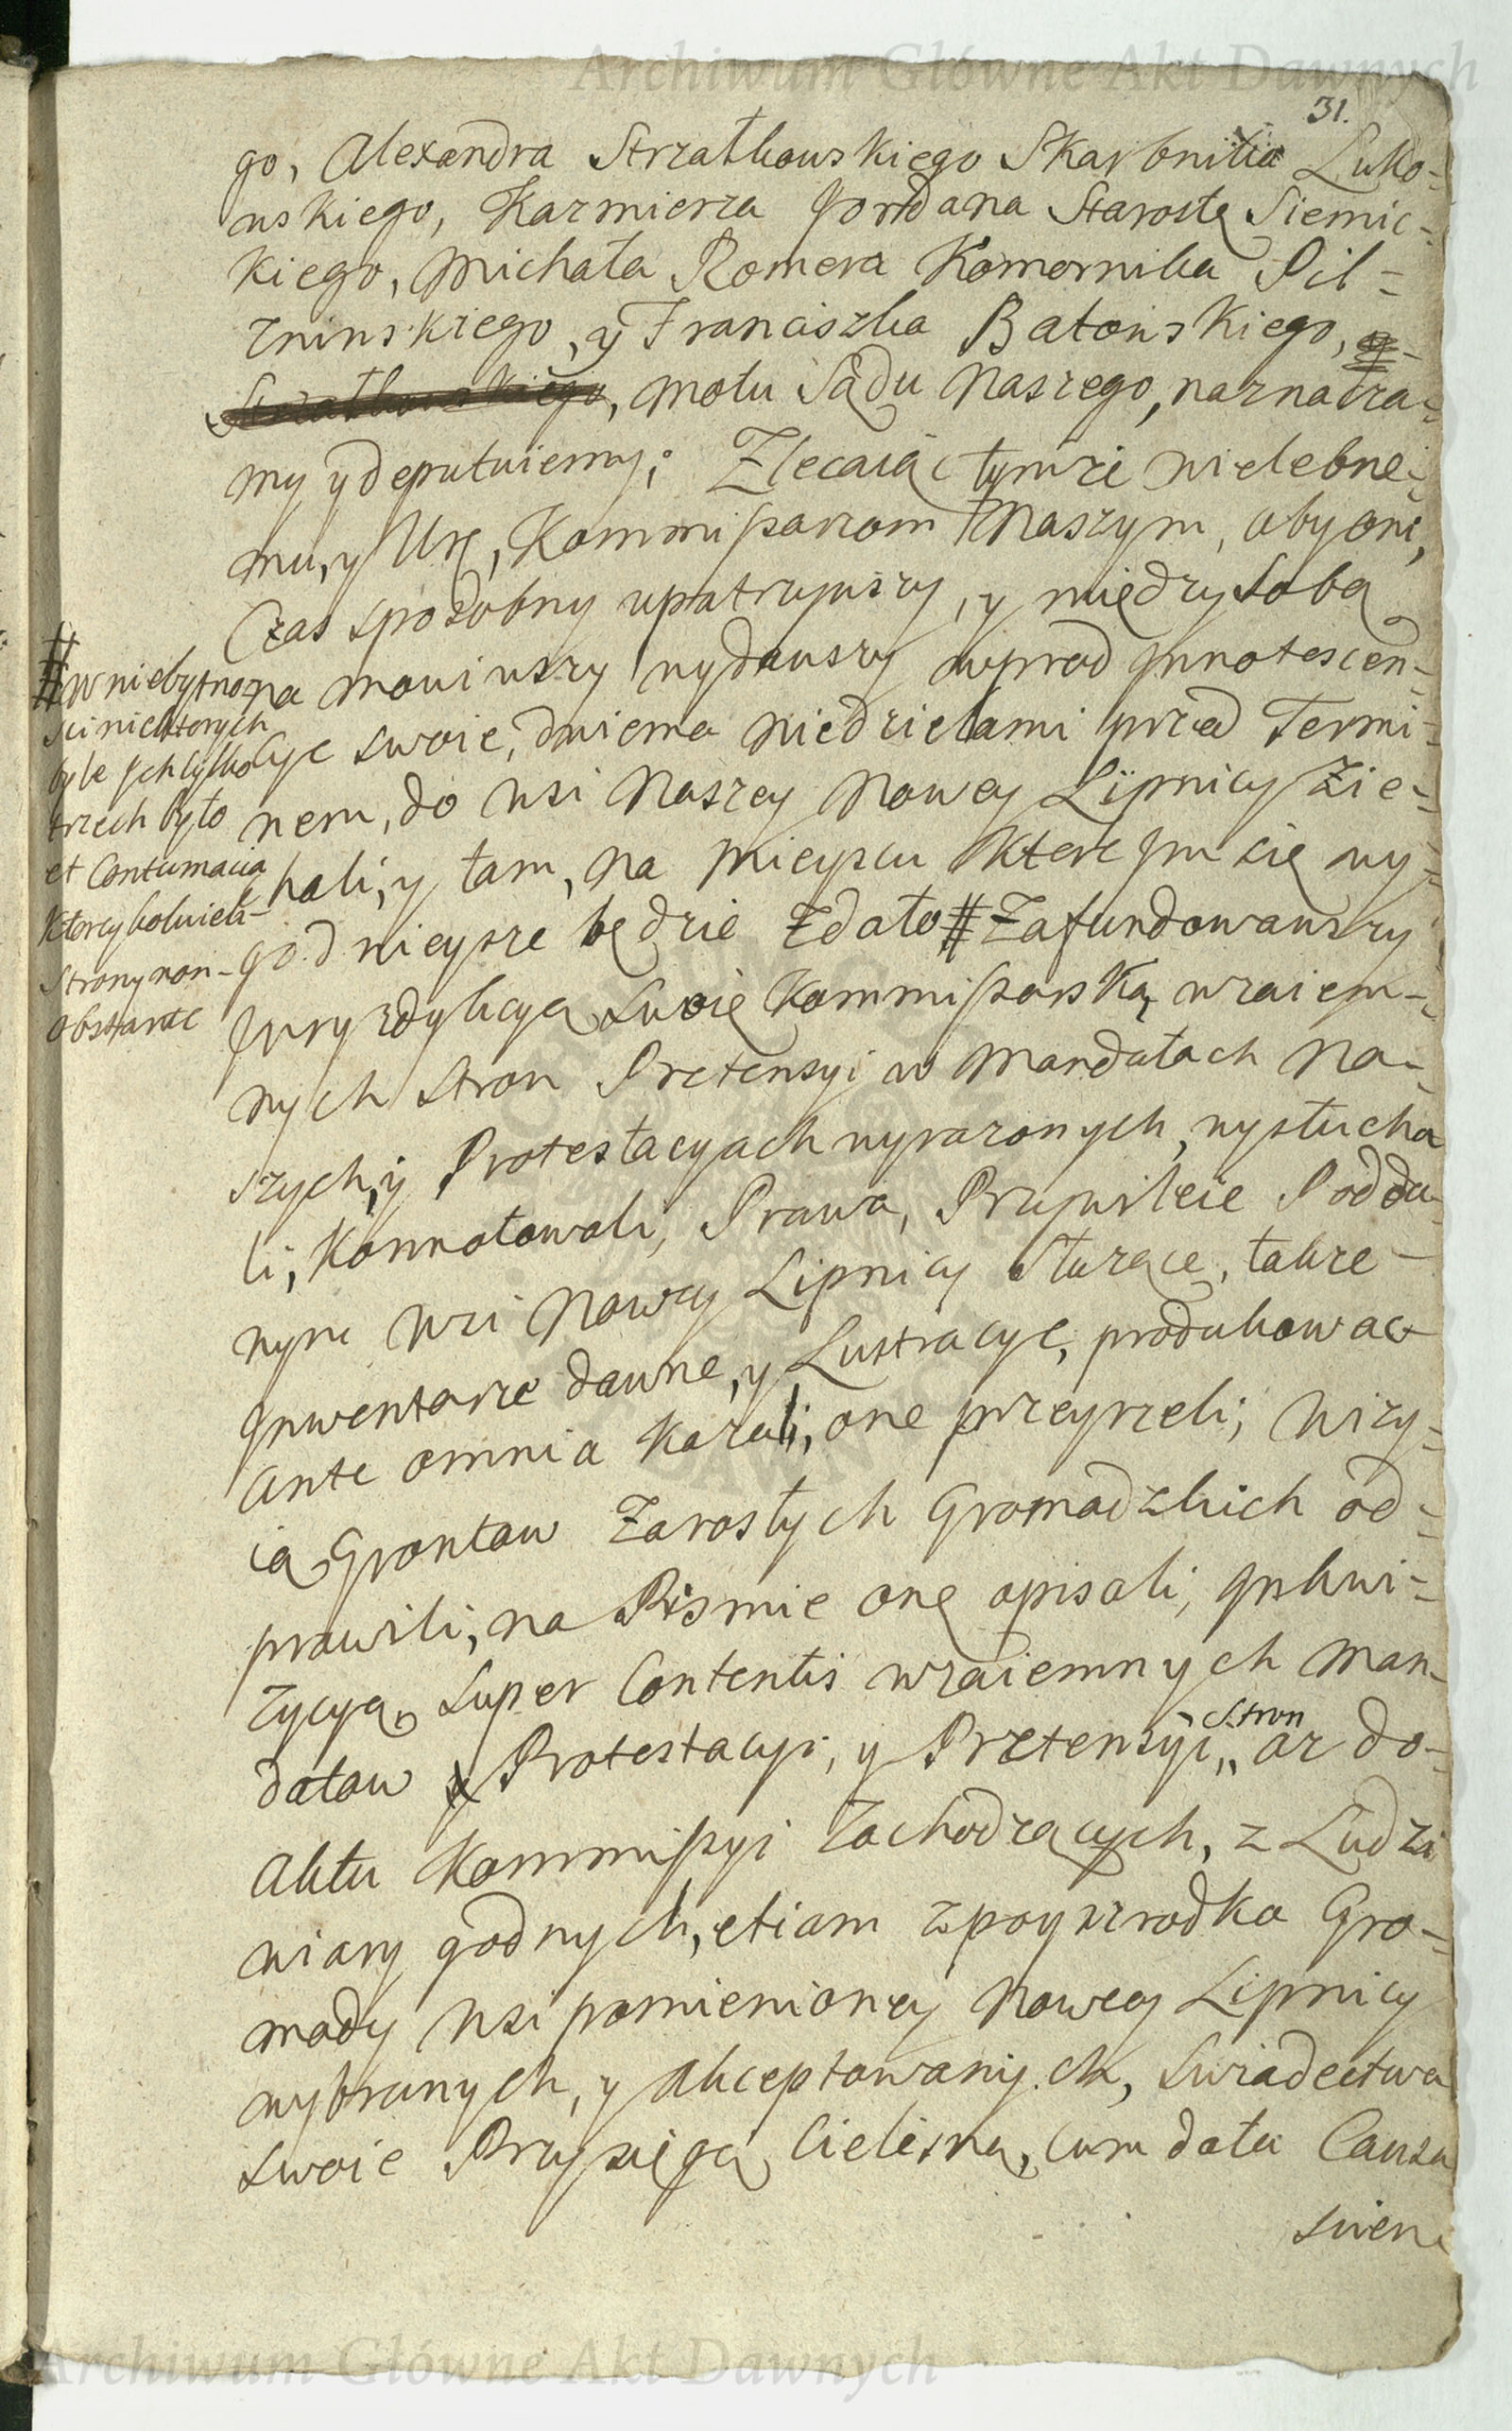 Archiwum Główne Akt Dawnych
31.
go, Alexandra Strzałkowskiego Skarbnika Łuko-
wskiego, Kazmierza Jordana Starostę Siemic-
kiego, Michała Romera Komornika Pil-
zninskiego, y Franciszka Batowskiego, y
Strzałkowskiego, motu Sądu Naszego, naznacza-
my y deputuiemy; Zlecaiąc tymże wielebne-
mu, y Ur., Kommissarzom Naszym, aby oni,
Czas sposobny upatrzywszy, y między sobą
na mowiwszy wydawszy wprzod Innotescen-
cye swoie, dwiema niedzielami przed Termi-
nem, do wsi Naszey Nowey Lipnicy Zie-
hali, y tam, na mieyscu ktore Im się wy-
godnieysze będzie Zdało # Zafundowawszy
Juryzdykcyą Swoię Kommissarską, wzaiem-
nych Stron Pretensyi w Mandatach Na-
szych, y Protestacyach wyrazonych, wysłucha
li, Konnotowali, Prawa, Przywileie Podda-
nym wsi Nowey Lipnicy Służące, takze
Inwentarze dawne, y Lustracye, produkować
ante omnia kazali, one przeyrzeli; Wizy-
ią Grontow Zarosłych Gromadzkich od-
prawili, na Pismie onę opisali, Inkwi-
zycyą Super Contentis wzaiemnych Man-
datow y Protestacyi, y Pretensyi Stron, az do
Aktu Kommissyi Zachodzących, z Ludzi
wiary godnych, etiam zpoyszrodka Gro-
mady wsi pomienioney Nowey Lipnicy
wybranych, y akceptowanych, Swiadectwa
Swoie Przysięgą Cielesną, cum data Causa
swien
# w niebytno-
sci niektorych
byle Ich tylko
trzech było
et Contumacia
ktorcykolwiek
Strony non-
obstante
Archiwum Główne Akt Dawnych